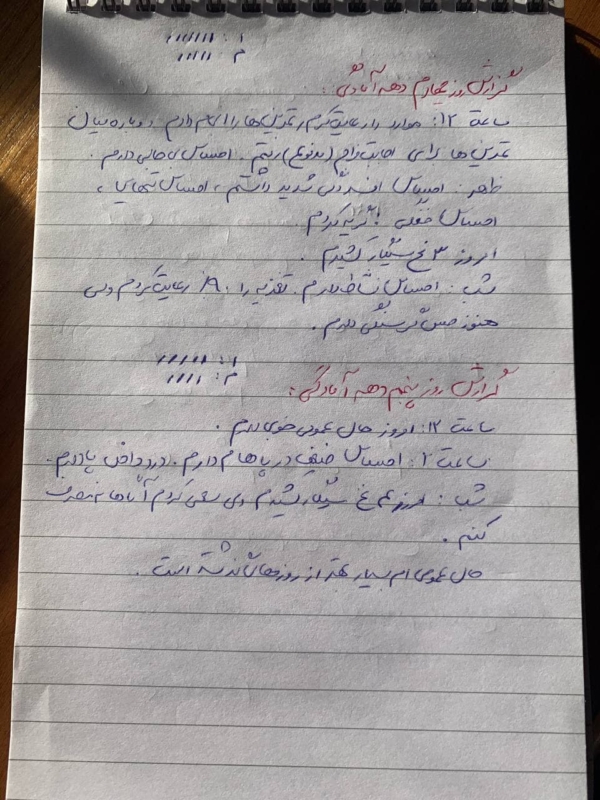 ا: ////////
م: /////
گزارش روز چهارم دهه آمادگی:
ساعت ۱۲: موارد را رعایت کردم، تمرین‌ها را انجام دادم. دوباره سیان
تمرین ها برای اجابت مزاج (مدفوع) رفتم. احساس بی حالی دارم.
ظهر: احساس افسردگی شدید داشتم، احساس تنهایی،
احساس خفگی! گریه کردم.
امروز ۳ نخ سیگار کشیدم.
شب: احساس نشاط دارم. تغذیه را ۹۰٪ رعایت کردم ولی
هنوز حس گرسنگی دارم.
ا: ////////
م: ////
گزارش روز پنجم دهه آمادگی:
ساعت ۱۲: امروز حال عمومی خوبی دارم.
ساعت ۲: احساس ضعیف در پاهام دارم. درد داخل پا دارم.
شب: امروز ۴ نخ سیگار کشیدم ولی سعی کردم آنها را نصف
کنم.
حال عمومی ام بسیار بهتر از روزهای گذشته است.